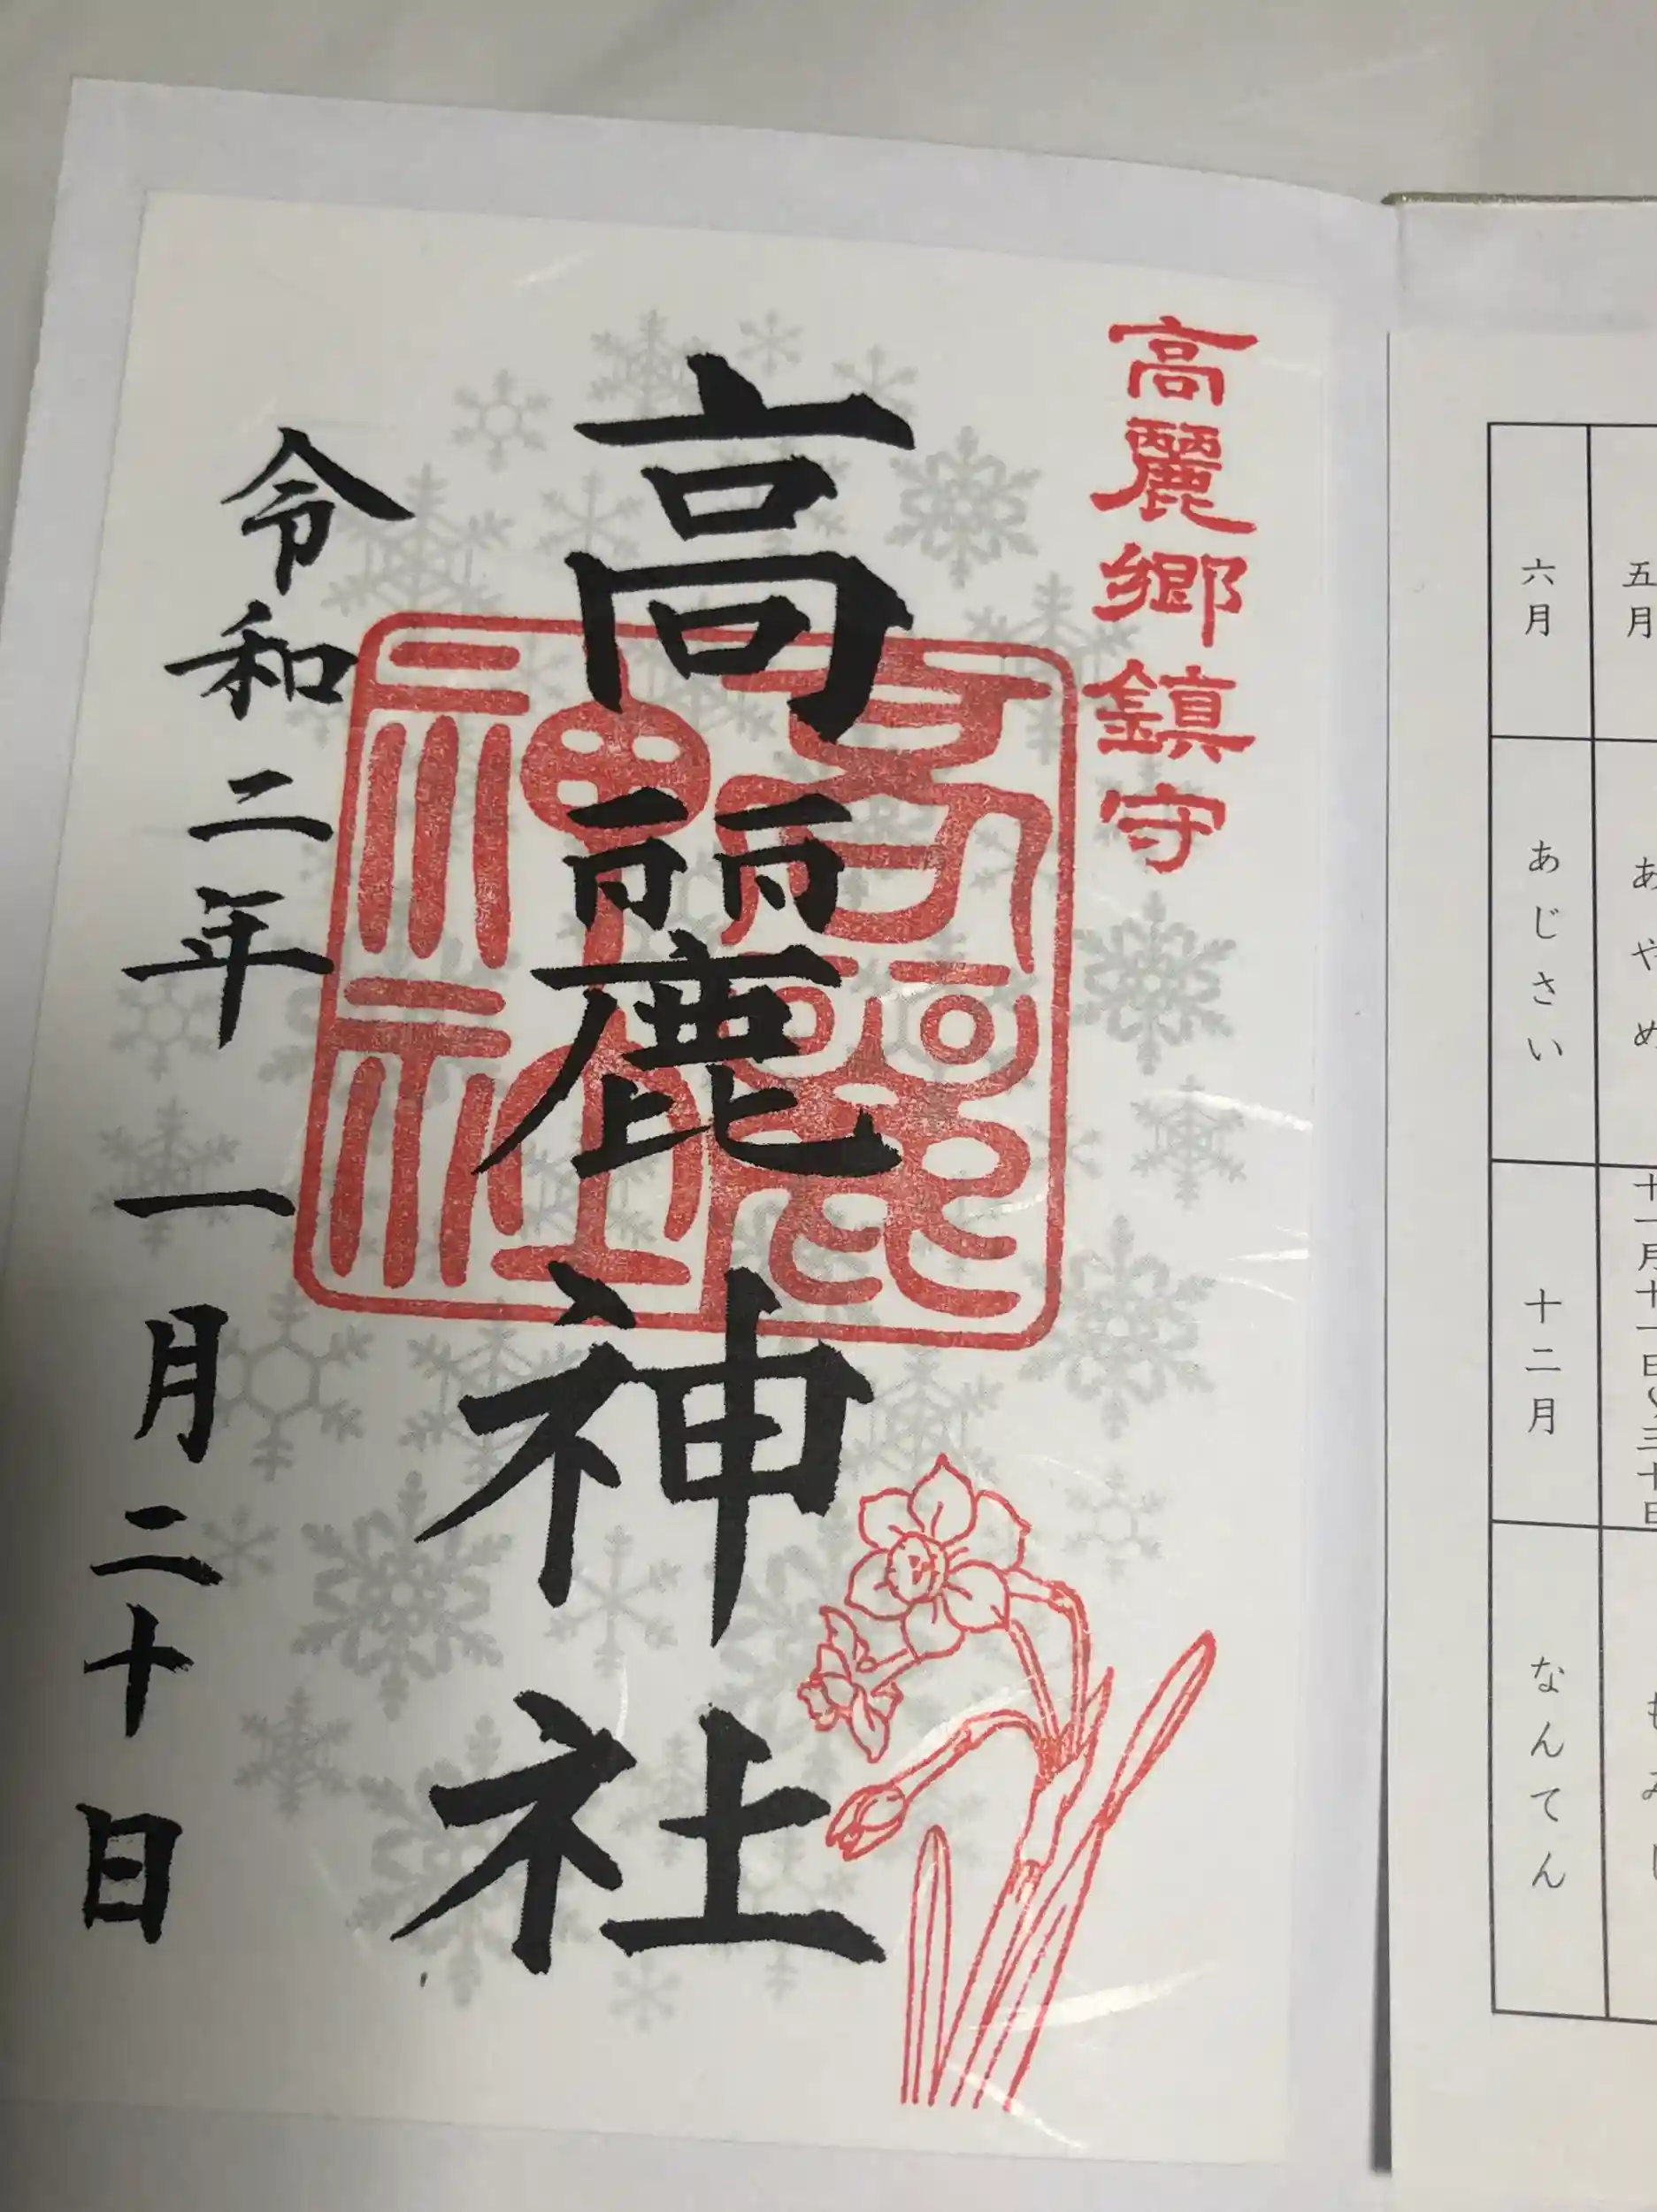 五月
あやめ
十一月十一日〜三十日
六月
あじさい
十二月
なんてん
高麗郷鎮守
高麗神社
令和二年一月二十日